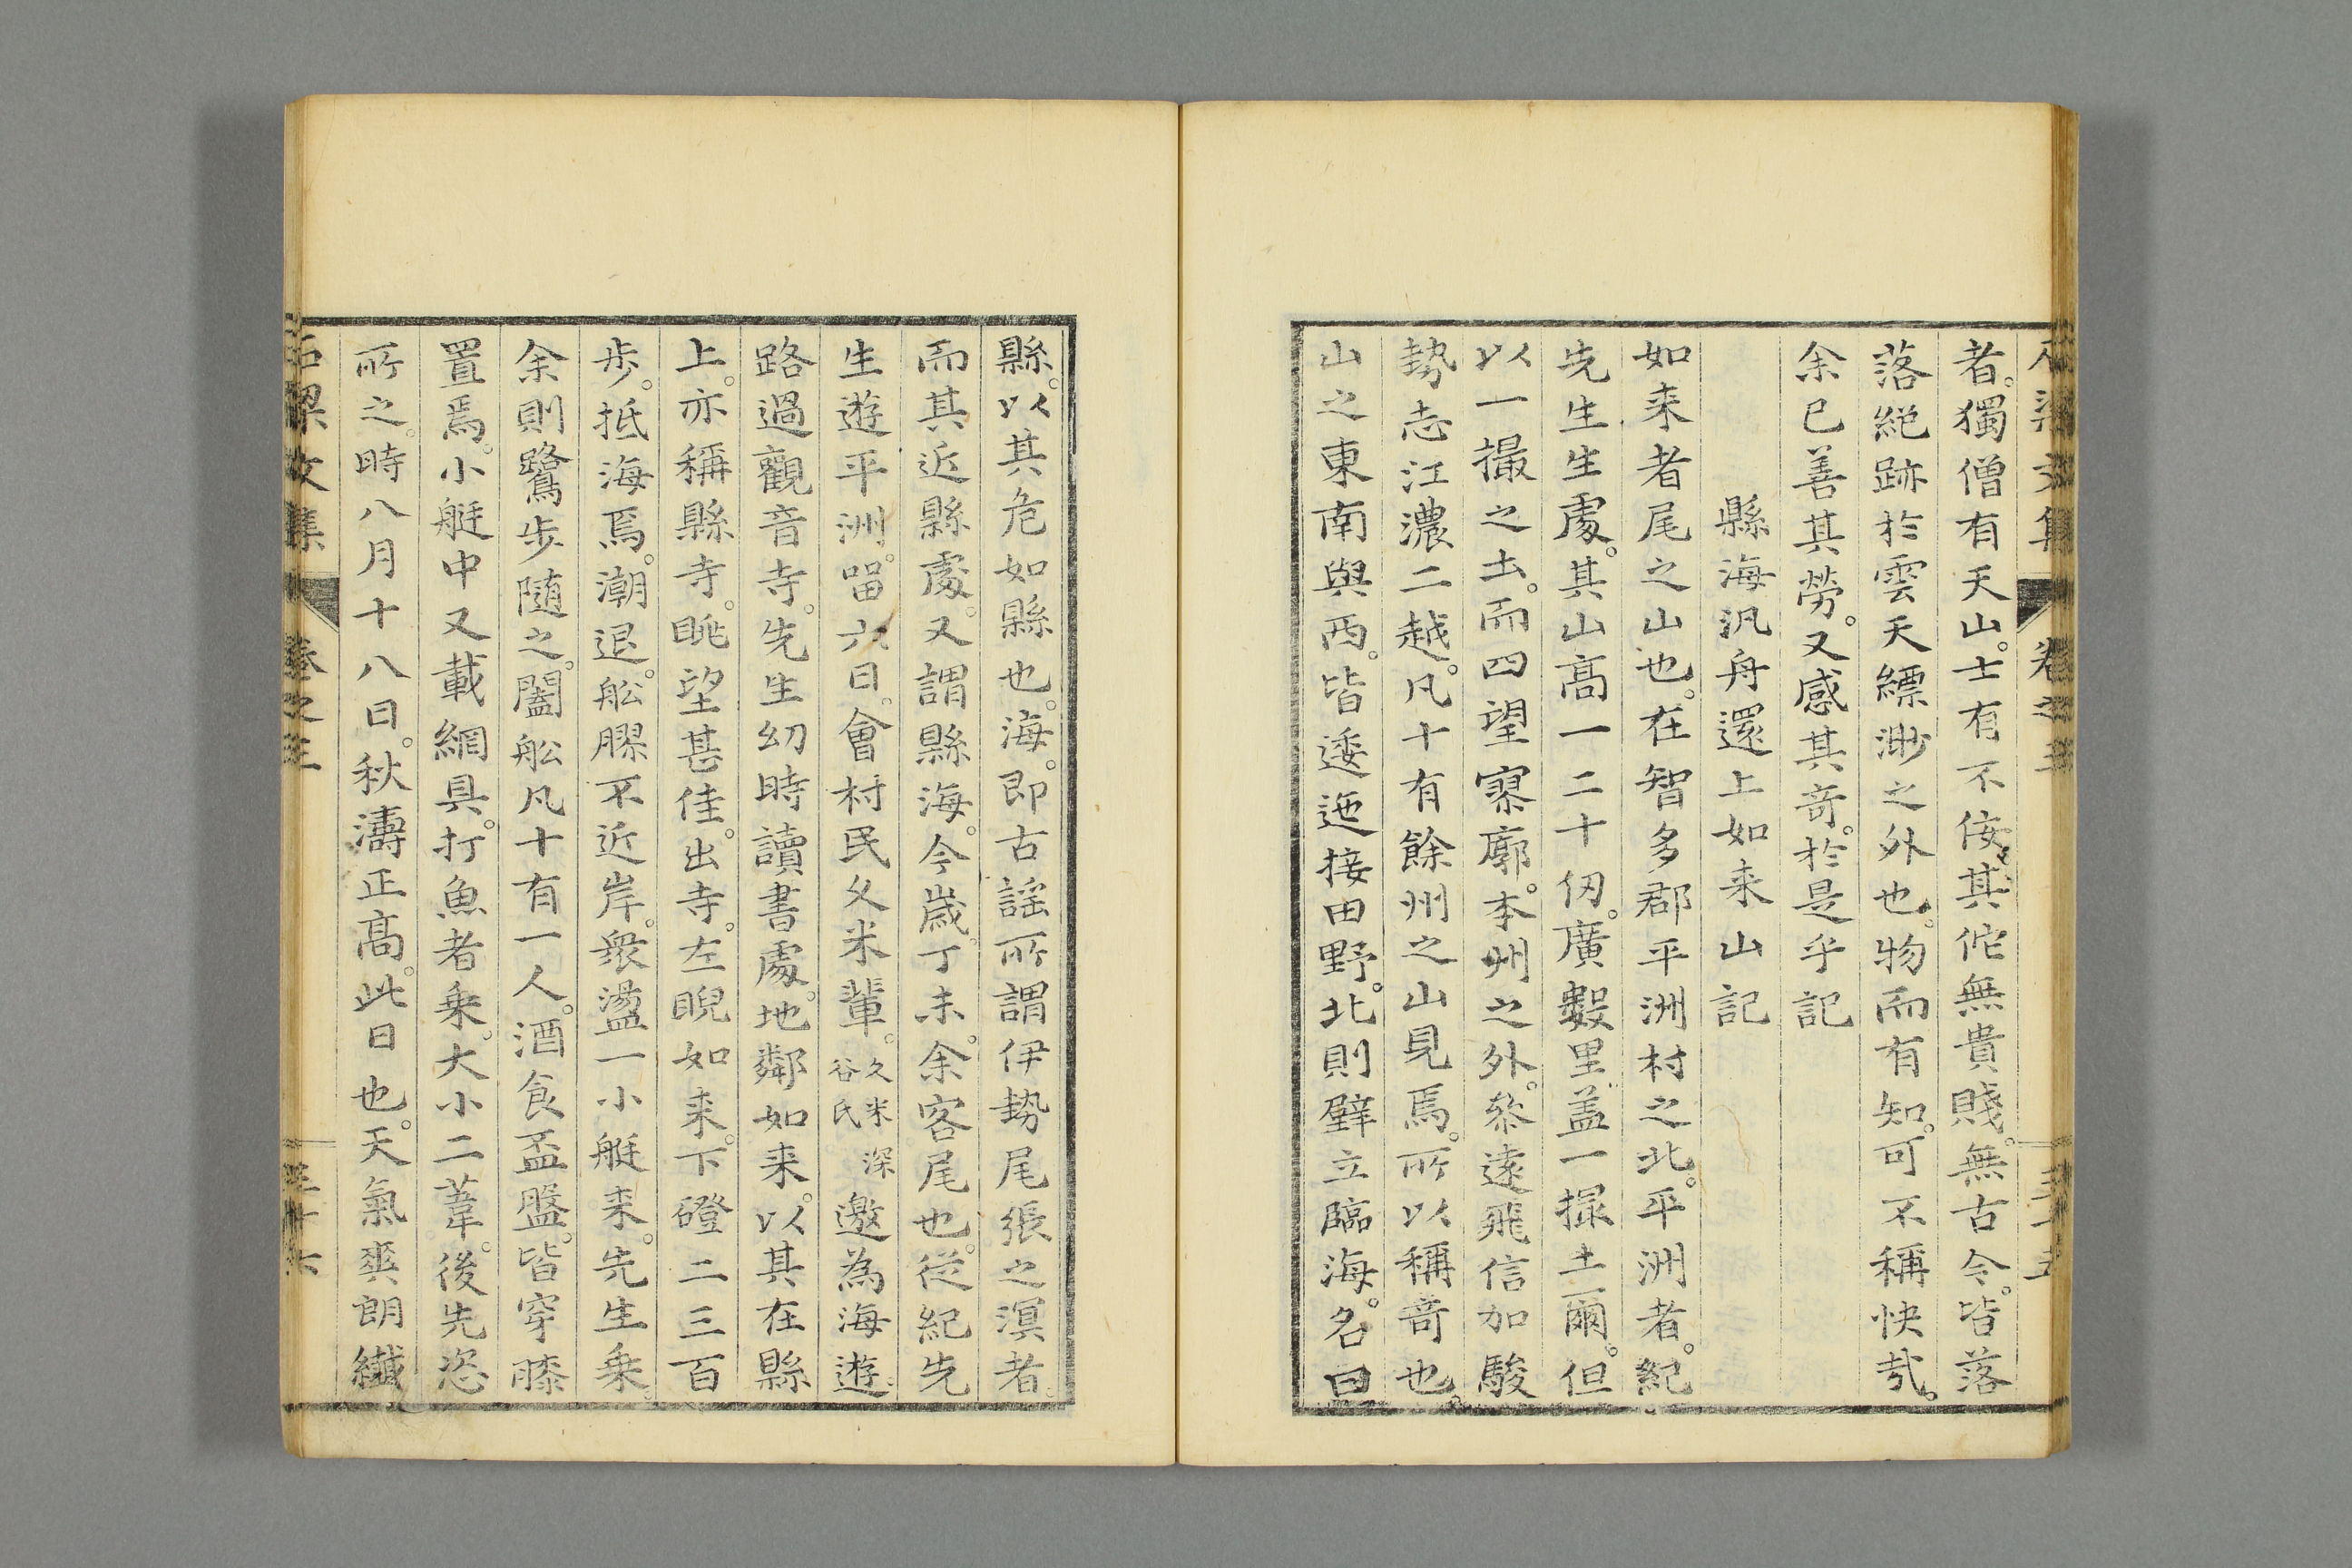 者。獨僧有天山。士有不佞其佗無貴賤。無古今。皆落
落絕跡於雲天縹渺之外也。物而有知。可不稱快哉。
余已善其勞。又感其奇。於是乎記
縣海汎舟還上如来山記
如来者尾之山也。在智多郡平洲村之北。平洲者。紀
先生生處。其山高一二十仞。廣數里盖一撮土爾。但
以一撮之土。而四望寥廓。本州之外。叅遠飛信加駿
勢志江濃二越。凡十有餘州之山見焉。所以稱奇也。
山之東南與西。皆逶迤接田野。北則壁立臨海。名曰
縣。以其危如縣也。海。即古謡所謂伊勢尾張之溟者。
而其近縣處。又謂縣海。今歲丁未。余客尾也。從紀先
生遊平洲。畱六日。會村民久米輩。久米深谷氏邀為海遊。
路過觀音寺。先生幼時讀書處。地鄰如来。以其在縣
上。亦稱縣寺。眺望甚佳。出寺。左睨如来。下磴二三百
步。抵海焉。潮退。舩膠不近岸。衆盪一小艇来。先生乗。
余則鷺步随之。闔舩凡十有一人。酒食盃盤。皆穿膝
置焉。小艇中又載網具。打魚者乗。大小二葦。後先恣
所之。時八月十八日。秋濤正高。此日也。天氣爽朗纎
石梁文集 卷之三 三十六